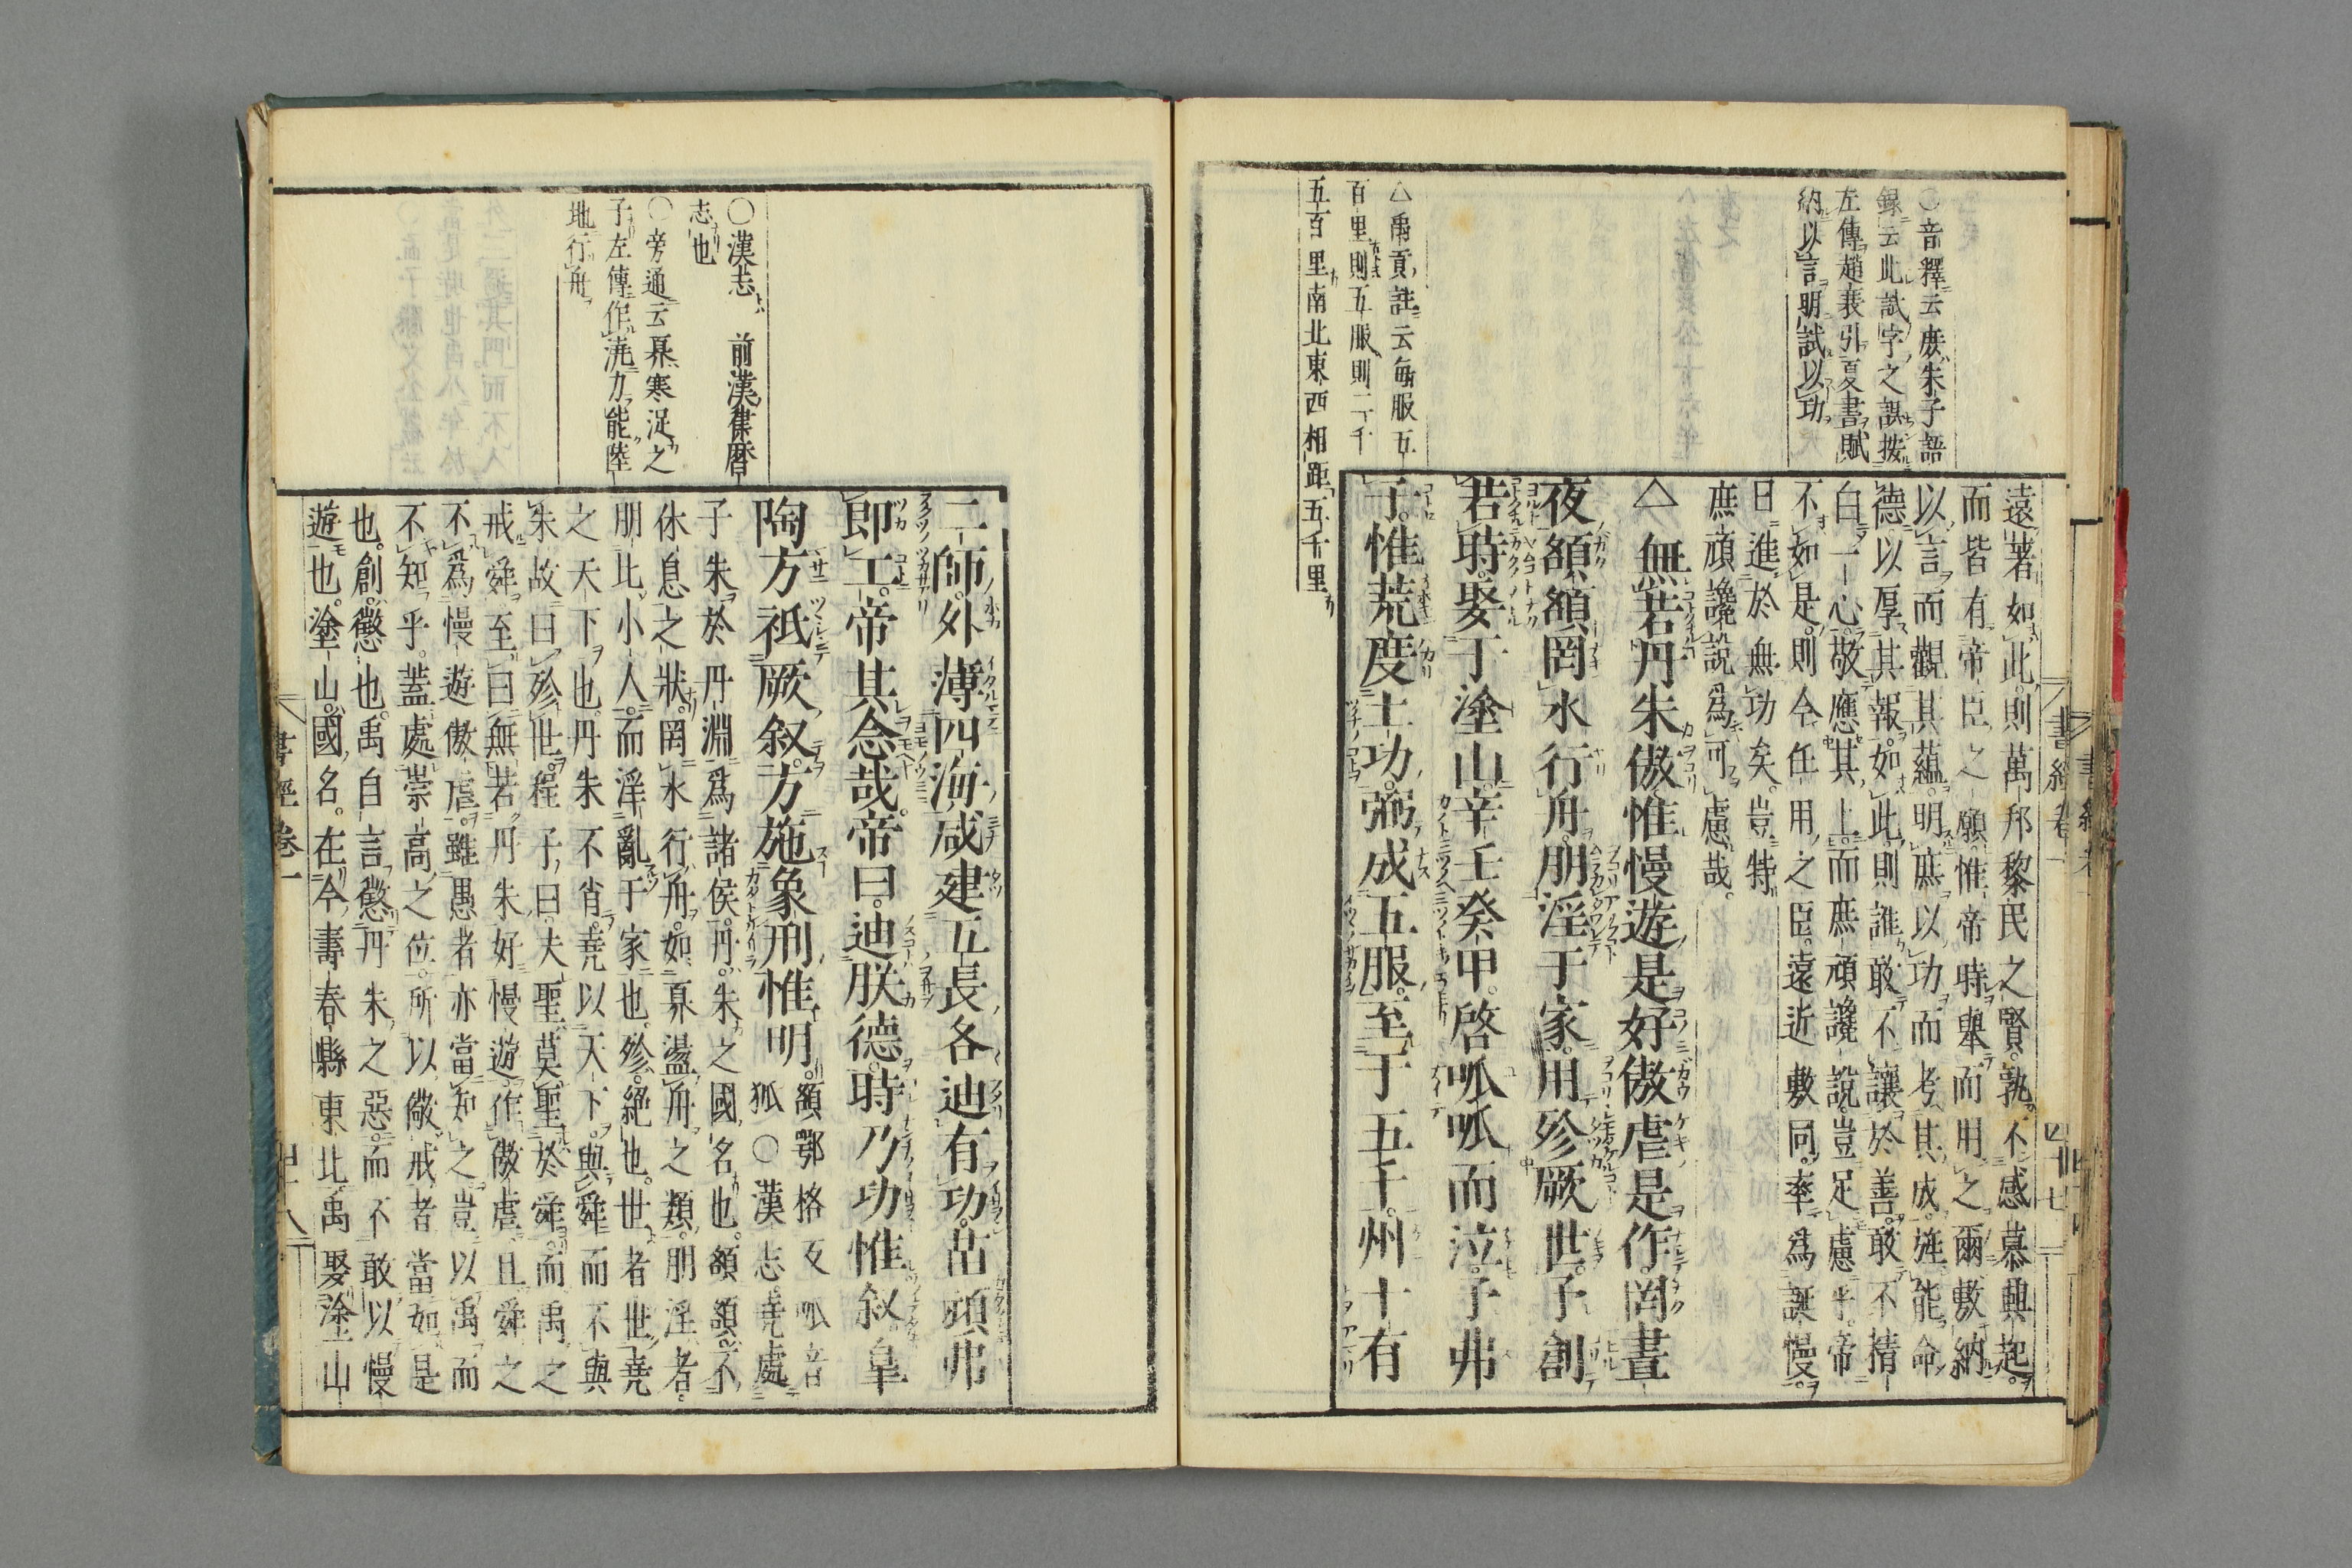 〇音釋云庶朱子語
錄云此試字之誤按
左傳趙衰引夏書賦
納以言明試以功
△禹貢註云每服五
百里則五服則二千
五百里南北東西相距五千里
遠著如此則萬邦黎民之賢孰不感慕興起
而皆有帝臣之願惟帝時舉而用之爾敷納
以言而觀其蘊明庶以功而考其成旌能命
德以厚其報如此則誰敢不讓於善敢不精
白一心敬應其上而庶頑讒說豈足慮乎帝
不如是則今任用之臣遠近敷同率爲誕慢
日進於無功矣豈特
庶頑讒說爲可慮哉
△無若丹朱傲惟慢遊是好傲虐是作罔晝
夜頟頟罔水行舟朋淫于家用殄厥世予創
若時娶于塗山辛壬癸甲啓呱呱而泣予弗
子惟荒度土功弼成五服至于五千州十有
書經卷一
四十七
〇漢志 前漢集曆
志也
〇旁通云奡寒浞之
子左傳作澆力能陸
地行舟
二師外薄四海咸建五長各迪有功苗頑弗
即工帝其念哉帝曰迪朕德時乃功惟叙皐
陶方祗厥叙方施象刑惟明
頟鄂格反呱音
狐〇漢志堯處
子朱於丹淵爲諸侯丹朱之國名也頟頟不
休息之狀罔水行舟如奡盪舟之類朋淫者
朋比小人而淫亂于家也殄絕也世者世堯
之天下也丹朱不肖堯以天下與舜而不與
朱故曰殄世程子曰夫聖莫聖於舜而禹之
戒舜至曰無若丹朱好慢遊作傲虐且舜之
不爲慢遊傲虐雖愚者亦當知之豈以禹而
不知乎蓋處崇高之位所以儆戒者當如是
也創懲也禹自言懲丹朱之惡而不敢以慢
遊也塗山國名在今壽春縣東北禹娶塗山
書經卷一
四十八